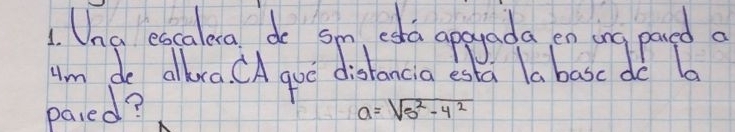 1. Una escalera de 5m está apoyada en una pared a
4m de altura. ¿A qué distancia está la base de la
pared?
a = √5² - 4²